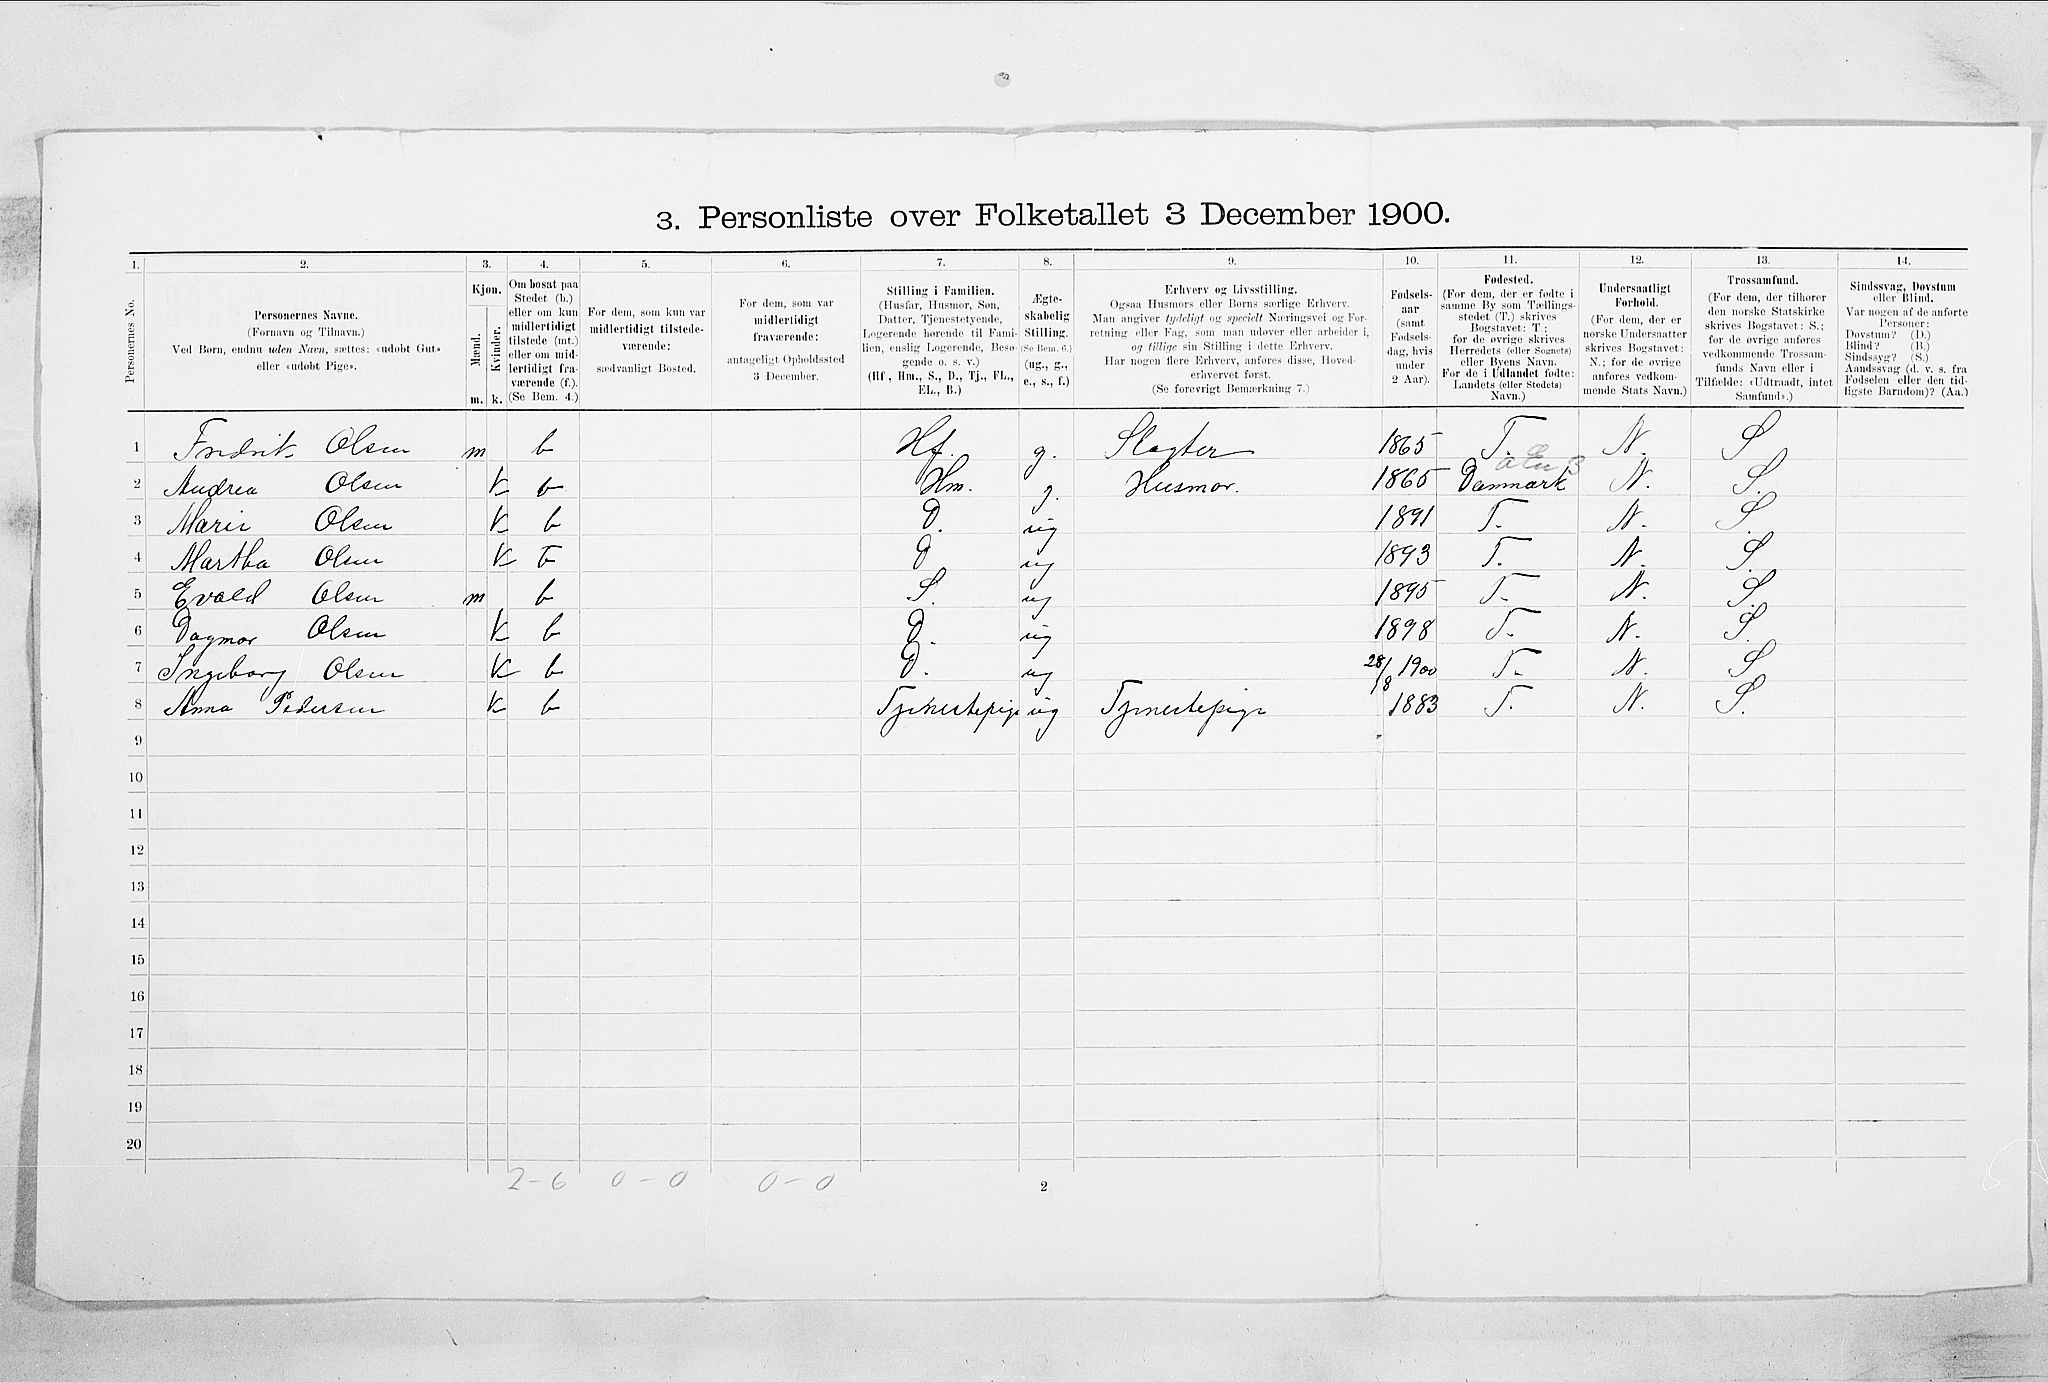 3. Personliste over Folketallet 3 December 1900.
1. 2. 3. 4. 5. 6. 7. 8. 9. 10. 11. 12. 13. 14.
Personernes No.
Personernes Navne.
(Fornavn og Tilnavn.)
Ved Børn, endnu uden Navn, sættes: «udøbt Gut»
eller «udøbt Pige».
Kjøn.
Mænd.
Kvinder.
m. k.
Om bosat paa
Stedet (b.)
eller om kun
midlertidigt
tilstede (mt.)
eller om mid-
lertidigt fra-
værende (f.).
(Se Bem. 4.)
For dem, som kun var
midlertidigt tilstede-
værende:
sædvanligt Bosted.
For dem, som var
midlertidigt
fraværende:
antageligt Opholdssted
3 December.
Stilling i Familien.
(Husfar, Husmor, Søn,
Datter, Tjenestetyende,
Logerende hørende til Fami-
lien, enslig Logerende, Besø-
gende o. s. v.)
(Hf., Hm., S., D., Tj., FL.,
EL., B.)
Ægte-
skabelig
Stilling.
(Se Bem. 6.)
(ug., g.,
e., s., f.)
Erhverv og Livsstilling.
Ogsaa Husmors eller Børns særlige Erhverv.
Man angiver tydeligt og specielt Næringsvei og For-
retning eller Fag, som man udøver eller arbeider i,
og tillige sin Stilling i dette Erhverv.
Har nogen flere Erhverv, anføres disse, Hoved-
erhvervet først.
(Se forøvrigt Bemærkning 7.)
Fødsels-
aar
(samt
Fødsels-
dag, hvis
under
2 Aar).
Fødested.
(For dem, der er fødte i
samme By som Tællings-
stedet (T.) skrives
Bogstavet: T.;
for de øvrige skrives
Herredets (eller Sognets)
eller Byens Navn.
For de i Udlandet fødte:
Landets (eller Stedets)
Navn.)
Undersaatligt
Forhold.
(For dem, der er
norske Undersaatter
skrives Bogstavet:
N.; for de øvrige
anføres vedkom-
mende Stats Navn.)
Trossamfund.
(For dem, der tilhører
den norske Statskirke
skrives Bogstavet: S.;
for de øvrige anføres
vedkommende Trossam-
funds Navn eller i
Tilfælde: «Udtraadt, intet
Samfund».)
Sindssvag, Døvstum
eller Blind.
Var nogen af de anførte
Personer:
Døvstum? (D.)
Blind? (B.)
Sindssyg? (S.)
Aandssvag (d. v. s. fra
Fødselen eller den tid-
ligste Barndom)? (Aa.)
1 Fredrik Olsen m b Hf. g. Slagter 1865 T. N. S
2 Andrea Olsen K b Hm. g. Husmor. 1865 Danmark N. S.
3 Marie Olsen K b D. ug 1891 T. N. S.
4 Martha Olsen K b D ug 1893 T. N. S.
5 Evald Olsen m b S. ug 1895 T. N. S.
6 Dagmar Olsen K b D. ug 1898 T. N. S.
7 Ingeborg Olsen K b D. ug 28/8 1900 T. N. S
8 Anna Pedersen K b Tjenestepige ug Tjenestepige 1883 T. N. S.
9
10
11
12
13
14
15
16
17
18
19
20
2-6 0-0 0-0
2